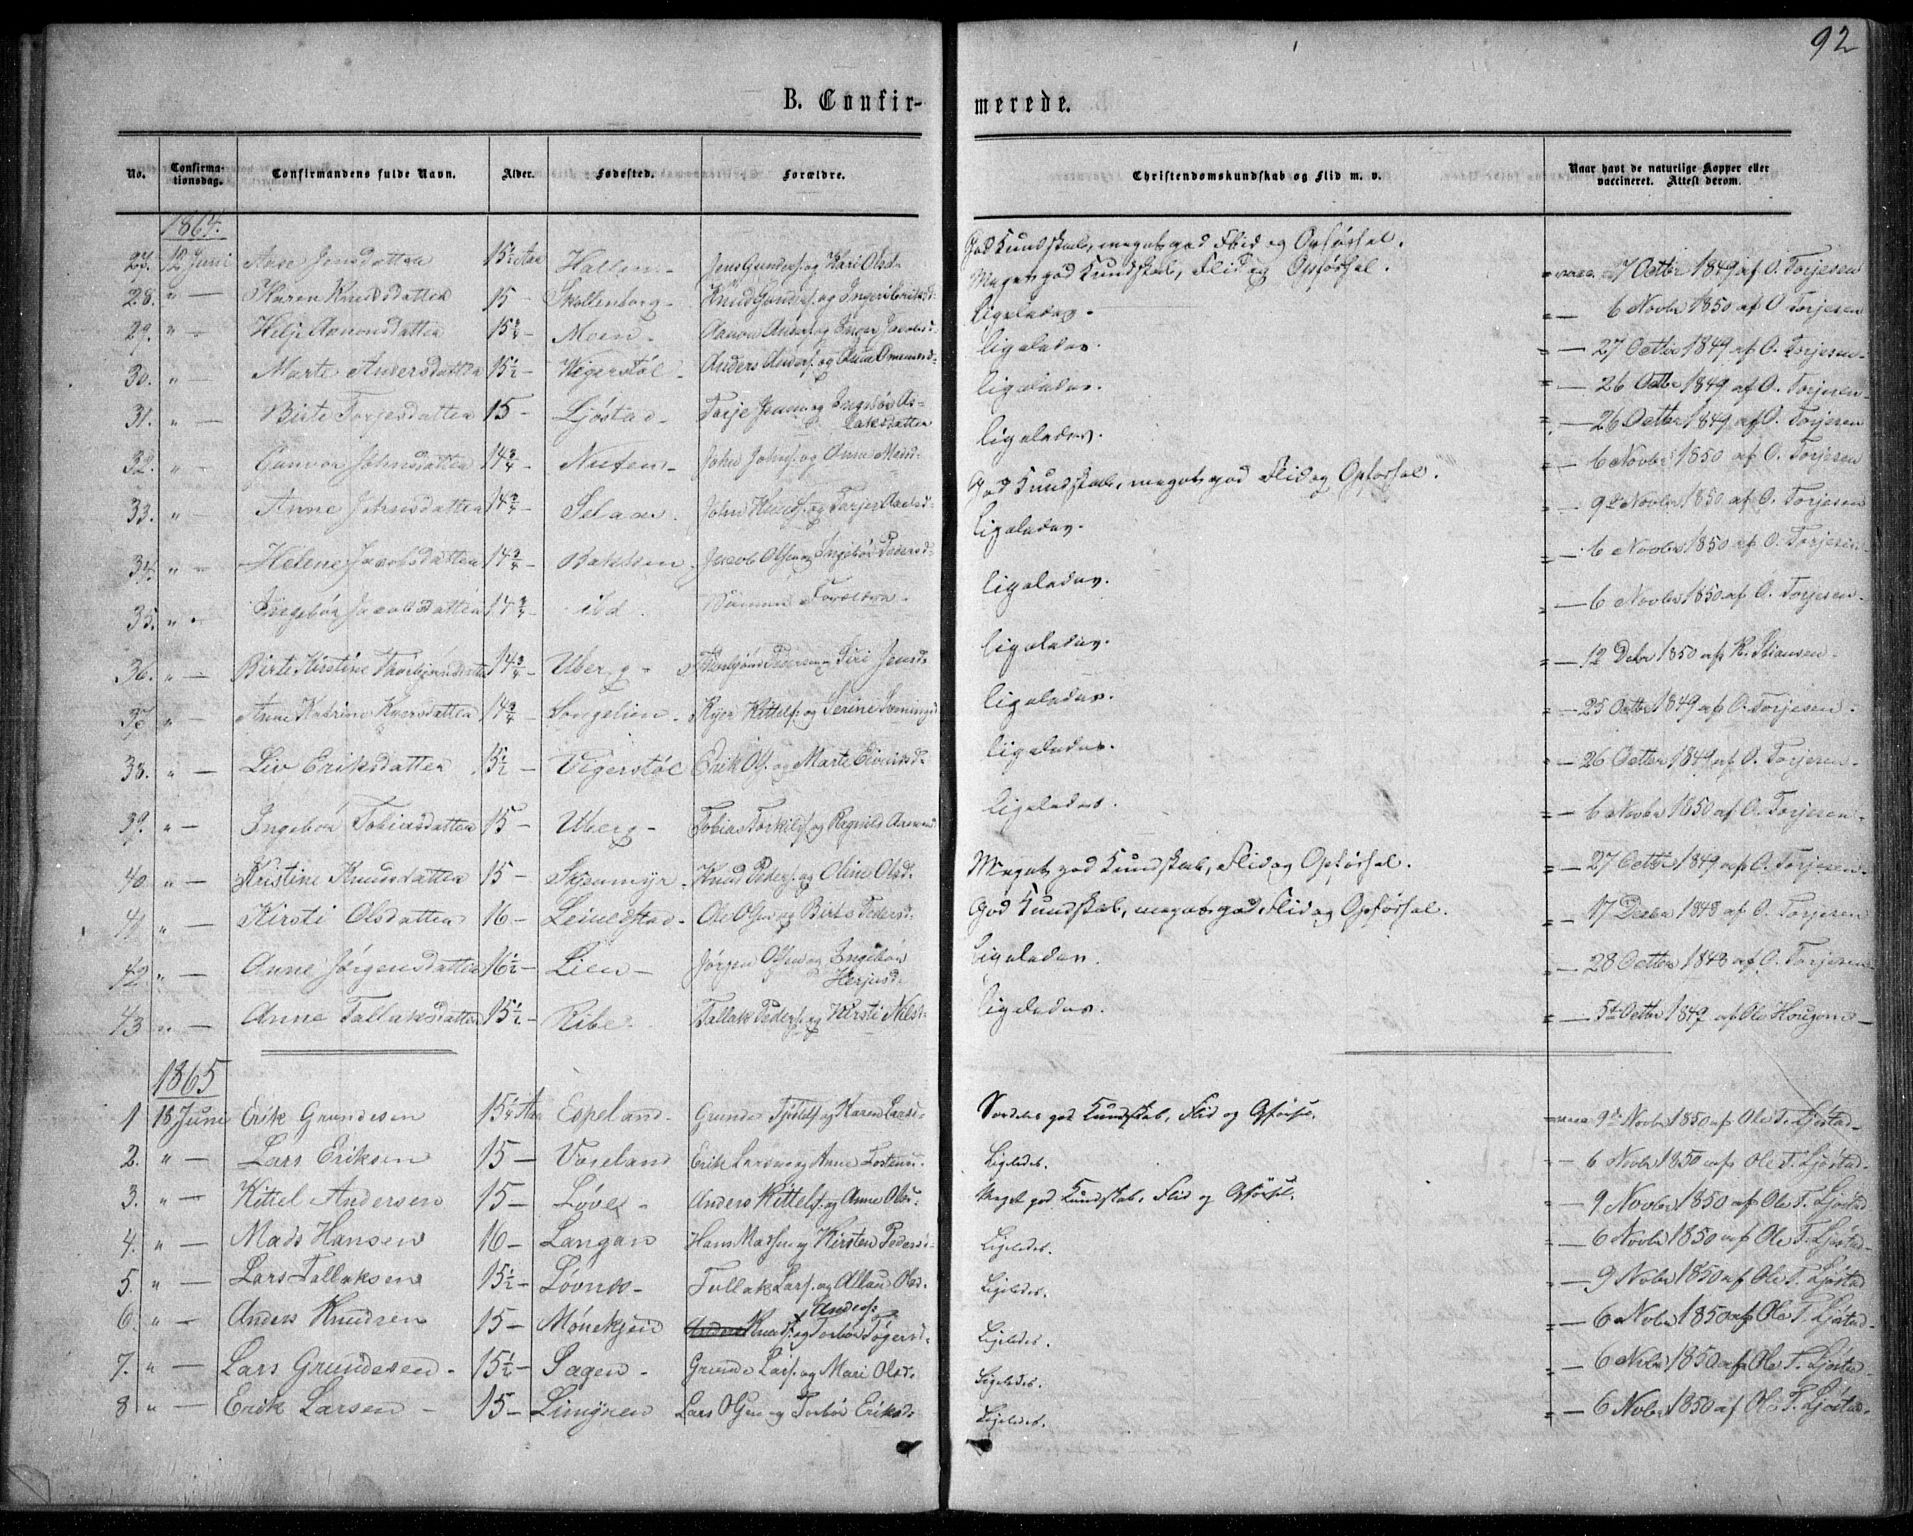 92
B. Confirmerede.
No. Confirmationsdag. Confirmandens fulde Navn. Alder. Fødested. Forældre. Christendomskundskab og Flid m. v. Naar havt de naturlige Kopper eller vaccineret. Attest derom.
1864.
27. 12 Juni Aase Jensdatter 15½ Aar Hallem - Jens Gunders. og Kari Olsd. God Kundskab, meget god Flid og Opførsel. vacc. 27 Octbr 1849 af O. Torjesen
28. " — Karen Knudsdatter 15 - Skollenborg - Knud Gunders. og Meget god Kundskab, Flid og Opførsel. " — 6 Novbr 1850 af O. Torjesen
29. " — Helje Aanonsdatter 15¾ - Moen - Aanon og Inger Jacobsd. Ligeledes. " — 27 Octbr 1849 af O. Torjesen
30. " — Marte Andersdatter 15½ - Vigerstøl - Anders Anders. og Ligeledes. " — 26 Octbr 1849 af O. Torjesen
31. " — Birte Torjesdatter 15 - Ljøstad - Torje Jens. og Ingebor Ligeledes. " — 26 Octbr 1849 af O. Torjesen
32. " — Gunvor Johnsdatter 14¾ - John Johns. og Anne Ligeledes. " — 6 Novbr 1850 af O. Torjesen
33. " — Anne Johnsdatter 14¾ - Selaas. John Knuds. og God Kundskab, meget god Flid og Opførsel. " — 9 Novbr 1850 af O. Torjesen
34. " — Helene Jacobsdatter 14¾ - Bakken. Jacob Olsen og Ingebor Pedersd. Ligeledes. " — 6 Novbr 1850 af O. Torjesen
35. " — Ingebor Jacobsdatter 14¾ - ibd. Samme Forældre. Ligeledes. " — 6 Novbr 1850 af O. Torjesen
36. " — Birte Kirstine Thorbjørnsdatter 14¾ - Uberg - Thorbjørn Pedersen og Siri Jensd. Ligeledes. " — 12 Debr 1850 af
37. " — Anne Katrine 14¾ - Songelien. Kittels. og Serine Ligeledes. " — 25 Octbr 1849 af O. Torjesen
38. " — Liv Eriksdatter 15½ - Vigerstøl Erik Ols. og Marte Ligeledes. " — 26 Octbr 1849 af O. Torjesen
39. " — Ingebor Tobiasdatter 15 - Uberg - Tobias Torkilds. og Ragnild Ligeledes. " — 6 Novbr 1850 af O. Torjesen
40. " — Kristine Knudsdatter 15 - Skjenmyr. Knud Peders. og Oline Olsd. Meget god Kundskab, Flid og Opførsel. " — 27 Octbr 1849 af O. Torjesen
41. " — Kirsti Olsdatter 16 - Leinestad. Ole Olsen og Birte Pedersd. God Kundskab, meget god Flid og Opførsel. " — 17 Debr 1848 af O. Torjesen
42. " — Anne Jørgensdatter 16½ - Lien - Jørgen Olsen og Ingebor Herjusd. Ligeledes. " — 28 Octbr 1848 af O. Torjesen
43. " — Anne Tallaksdatter 15½ - Ribe. Tallak Peders. og Kirsti Nilsd. Ligeledes. " — 5te Octbr 1849 af Ole Hougom
1865
1 18 Juni Erik Grundesen 15¼ Aar Espeland. Grunde Tjøstels. og Karen Larsd. Særdeles god Kundskab, Flid og Opførsel. vacc. 9de Novbr 1850 af Ole T. Ljøstad
2. " — Lars Eriksen 15 — Voreland Erik Larsen og Anne Ligeledes. — 6 Novbr 1850 af Ole T. Ljøstad
3. " — Kittel Andersen 15 - Løvel - Anders Kittels. og Anne Olsd. Meget god Kundskab, Flid og Opførsel. — 9 Novbr 1850 af Ole T. Ljøstad
4. " — Mads Hansen 16 - Langan Hans Madsen og Kirsten Pedersd. Ligeledes. — 6 Novbr 1850 af Ole T. Ljøstad
5. " — Lars Tallaksen 15½ - Løvnes - Tallak Lars. og Olsd. Ligeledes. — 9 Novbr 1850 af Ole T. Ljøstad
6. " — Anders Knudsen 15 - Møneksen Anders Knud Anders. og Torbor Ligeledes. — 6 Novbr 1850 af Ole T. Ljøstad
7. " — Lars Grundesen - 15½ - Sagen - Grunde Lars. og Mari Olsd. Ligeledes. — 6 Novbr 1850 af Ole T. Ljøstad
8 " — Erik Larsen - 15 - Limyren Lars Olsen og Torbor Eriksd. Ligeledes. — 6 Novbr 1850 af Ole T. Ljøstad